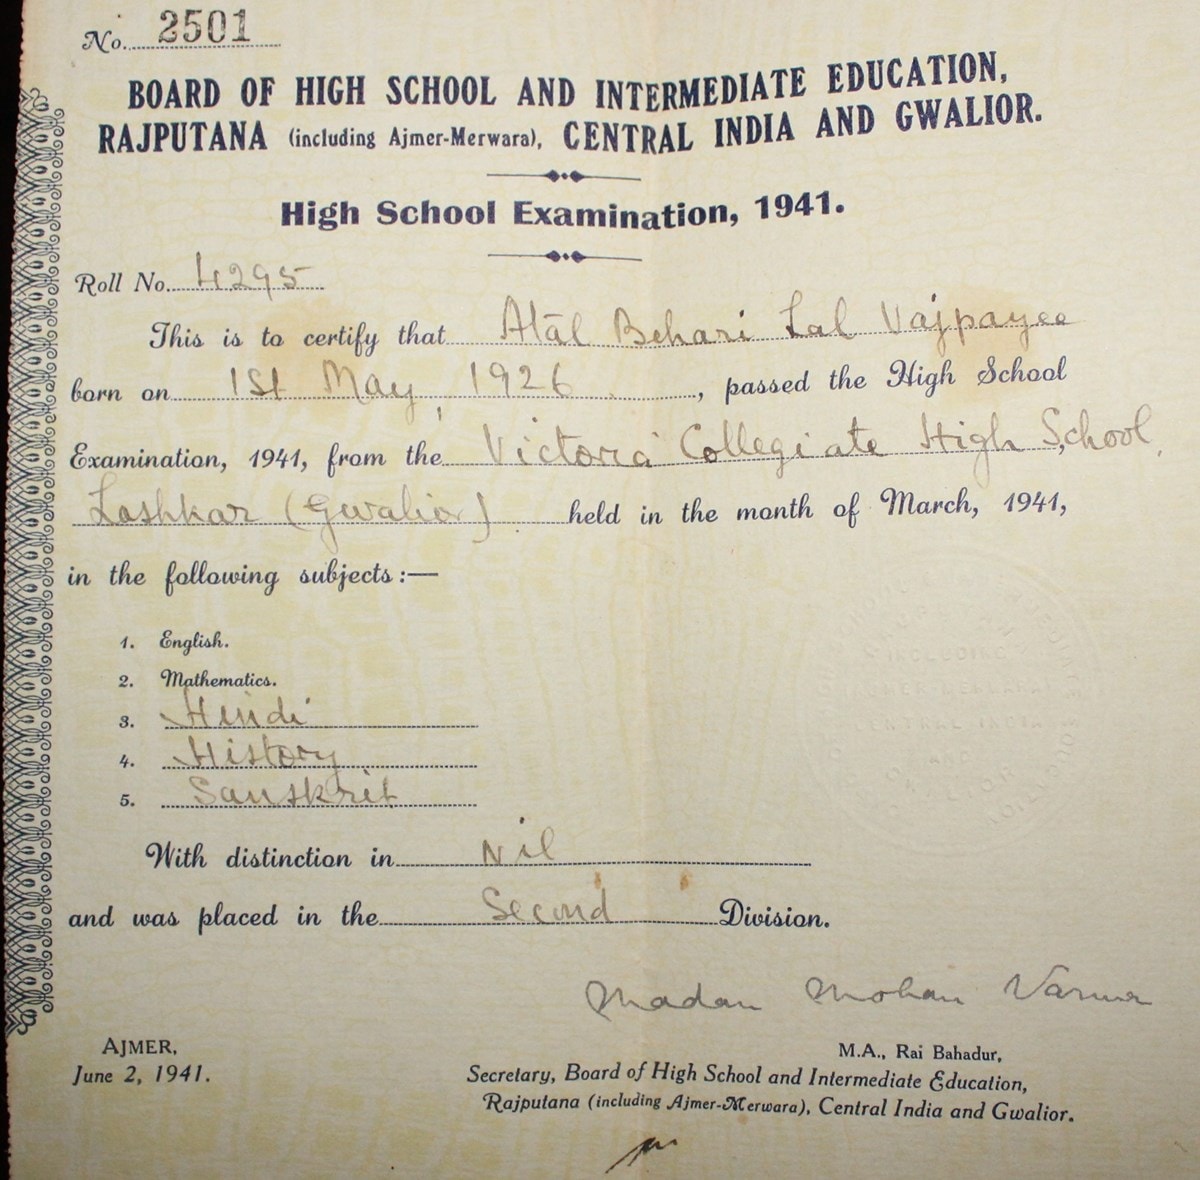 No. 2501
BOARD OF HIGH SCHOOL AND INTERMEDIATE EDUCATION,
RAJPUTANA (including Ajmer-Merwara), CENTRAL INDIA AND GWALIOR.
High School Examination, 1941.
Roll No. 4295
This is to certify that Atal Behari Lal Vajpayee
born on 1st May, 1926, passed the High School
Examination, 1941, from the Victoria Collegiate High School,
Lashkar (Gwalior) held in the month of March, 1941,
in the following subjects:—
1. English.
2. Mathematics.
3. Hindi
4. History
5. Sanskrit
With distinction in Nil
and was placed in the Second Division.
Madan Mohan Varma
AJMER,
June 2, 1941.
M.A., Rai Bahadur,
Secretary, Board of High School and Intermediate Education,
Rajputana (including Ajmer-Merwara), Central India and Gwalior.